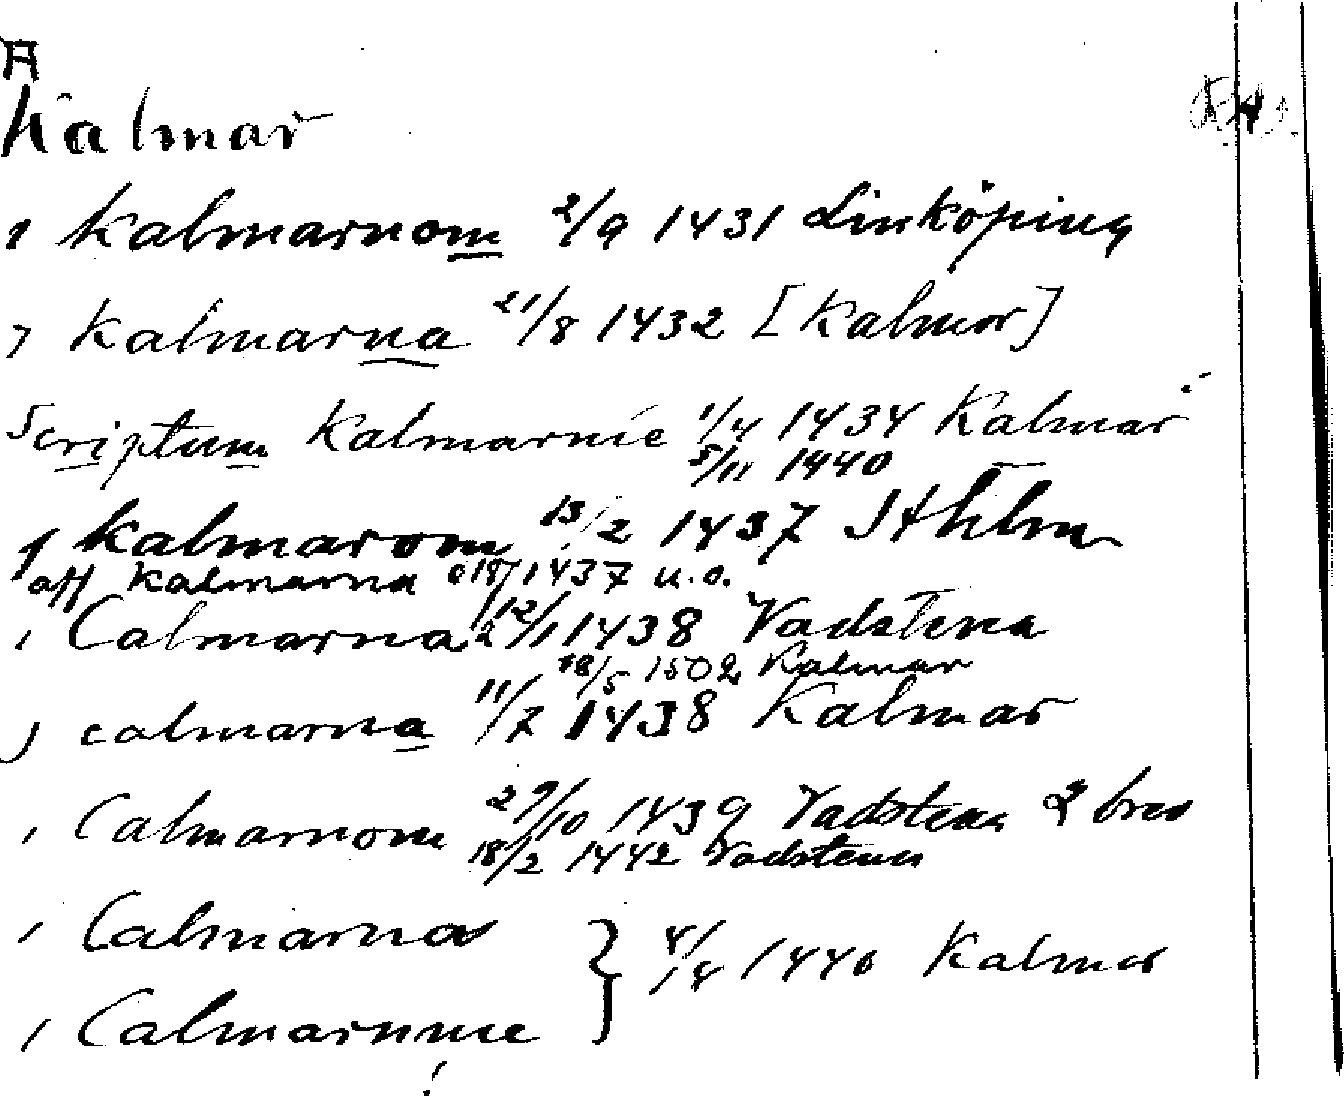 A
Kalmar
i kalmarnom 2/9 1431 Linköping
j Kalmarna 21/8 1432 [Kalmar]
Scriptum Kalmarnie 1/4 1434 Kalmar
5/11 1440
j kalmarom 13/2 1437 Sthlm
aff kalmarna 18/12 1437 u.o.
i Calmarna 2/1 1438 Vadstena
18/5 1502 Kalmar
j calmarna 11/7 1438 Kalmar
i Calmarnom 29/10 1439 Vadstena 2 brev
18/2 1442 Vadstena
i Calmarna
} 4/4 1440 Kalmar
i Calmarnme
!